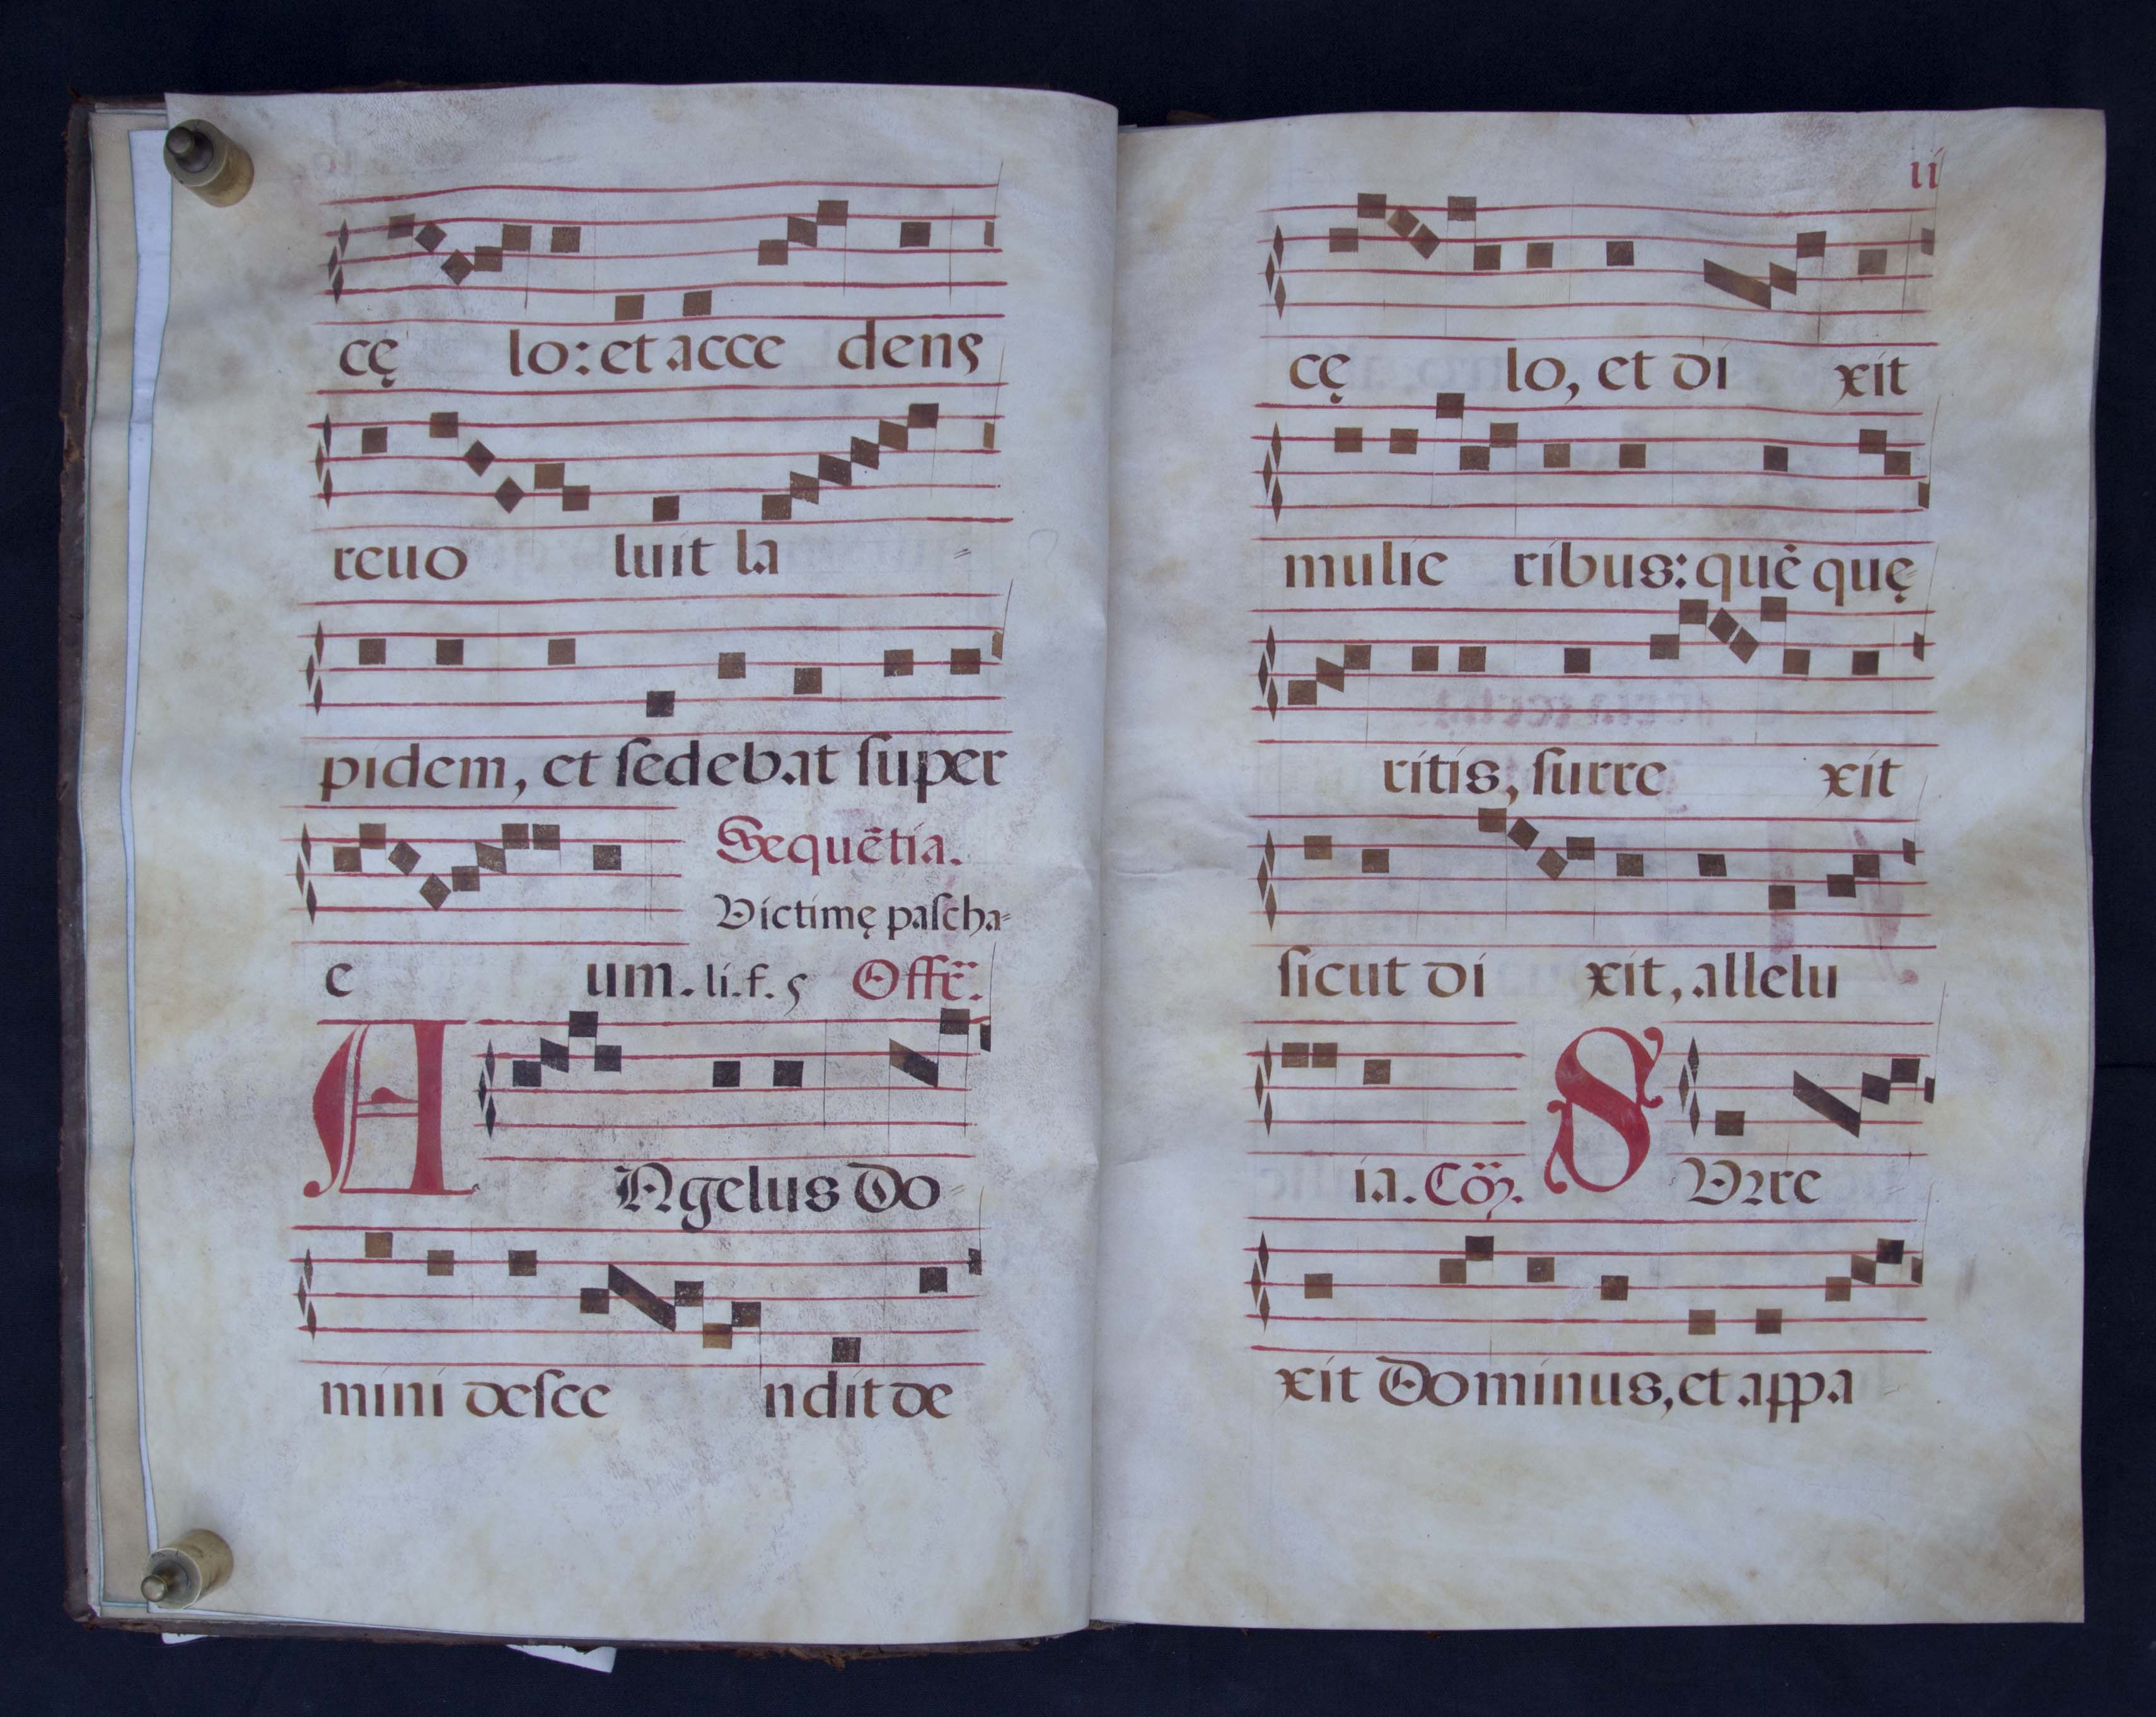 cę lo: et acce dens
reuo luit la =
pidem, et ſedebat ſuper
Sequẽtia.
Victimę paſcha=
e um. li. f. 5 Offẽ.
ANgelus Do=
mini deſce ndit de
ii
cę lo, et di xit
mulie ribus: quẽ quę=
ritis, ſurre xit
ſicut di xit, allelu
ia. Cõ. SVrre
xit Dominus, et appa